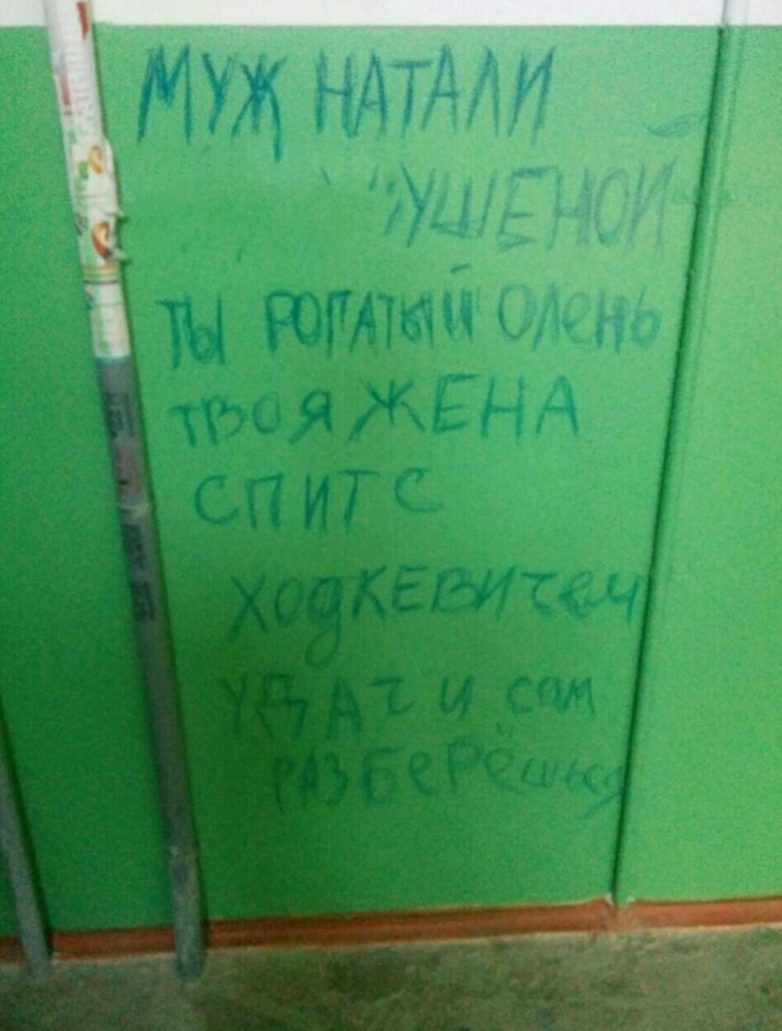 МУЖ НАТАЛИ
УШЕНОЙ
ТЫ РОГАТЫЙ ОЛЕНЬ
ТВОЯ ЖЕНА
СПИТ С
ХОДКЕВИЧЕМ
УДАЧИ сам
РАЗБЕРЁШЬСЯ